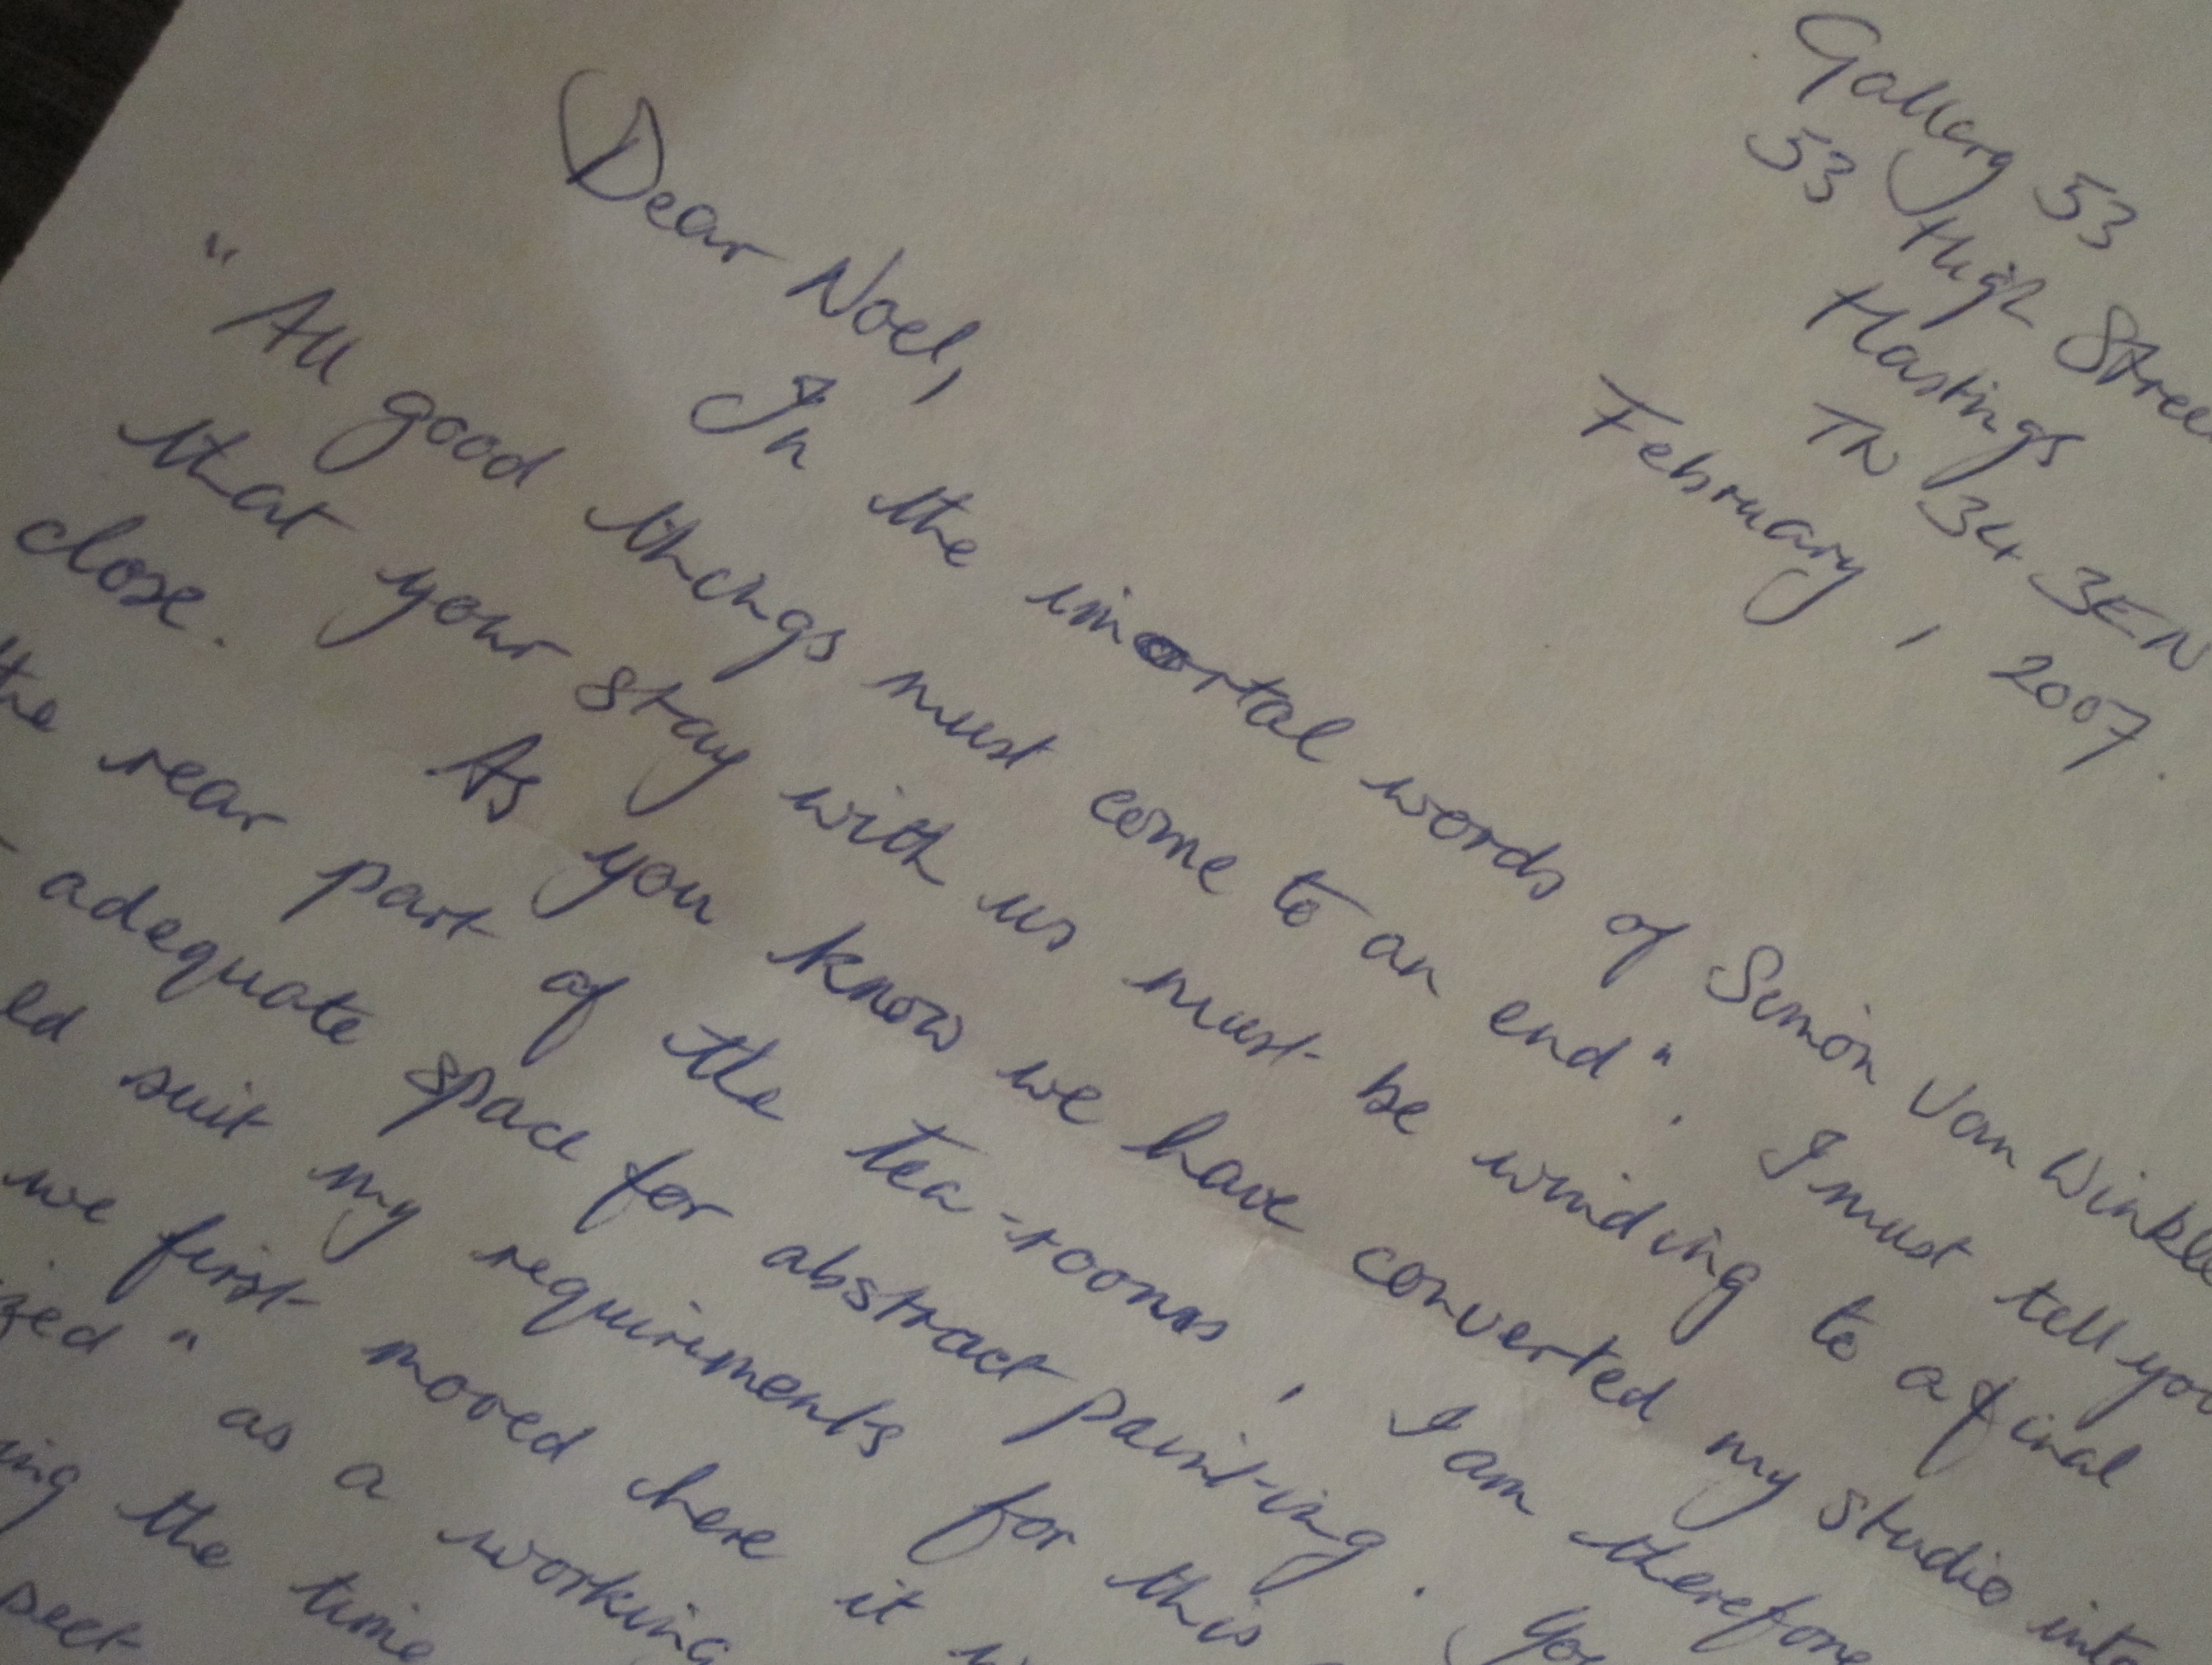 Gallery 53
53 High Stree
Hastings
TN 34 3EN
February, 2007.
Dear Noel,
In the imortal words of Simon Van Winkle
"All good things must come to an end". I must tell you
that your stay with us must be winding to a final
close. As you know we have converted my studio into
the rear part of the tea-rooms, I am therefore
adequate space for abstract painting. You
ld suit my requirements for this
we first moved here it w
zed" as a working
ing the time
pect